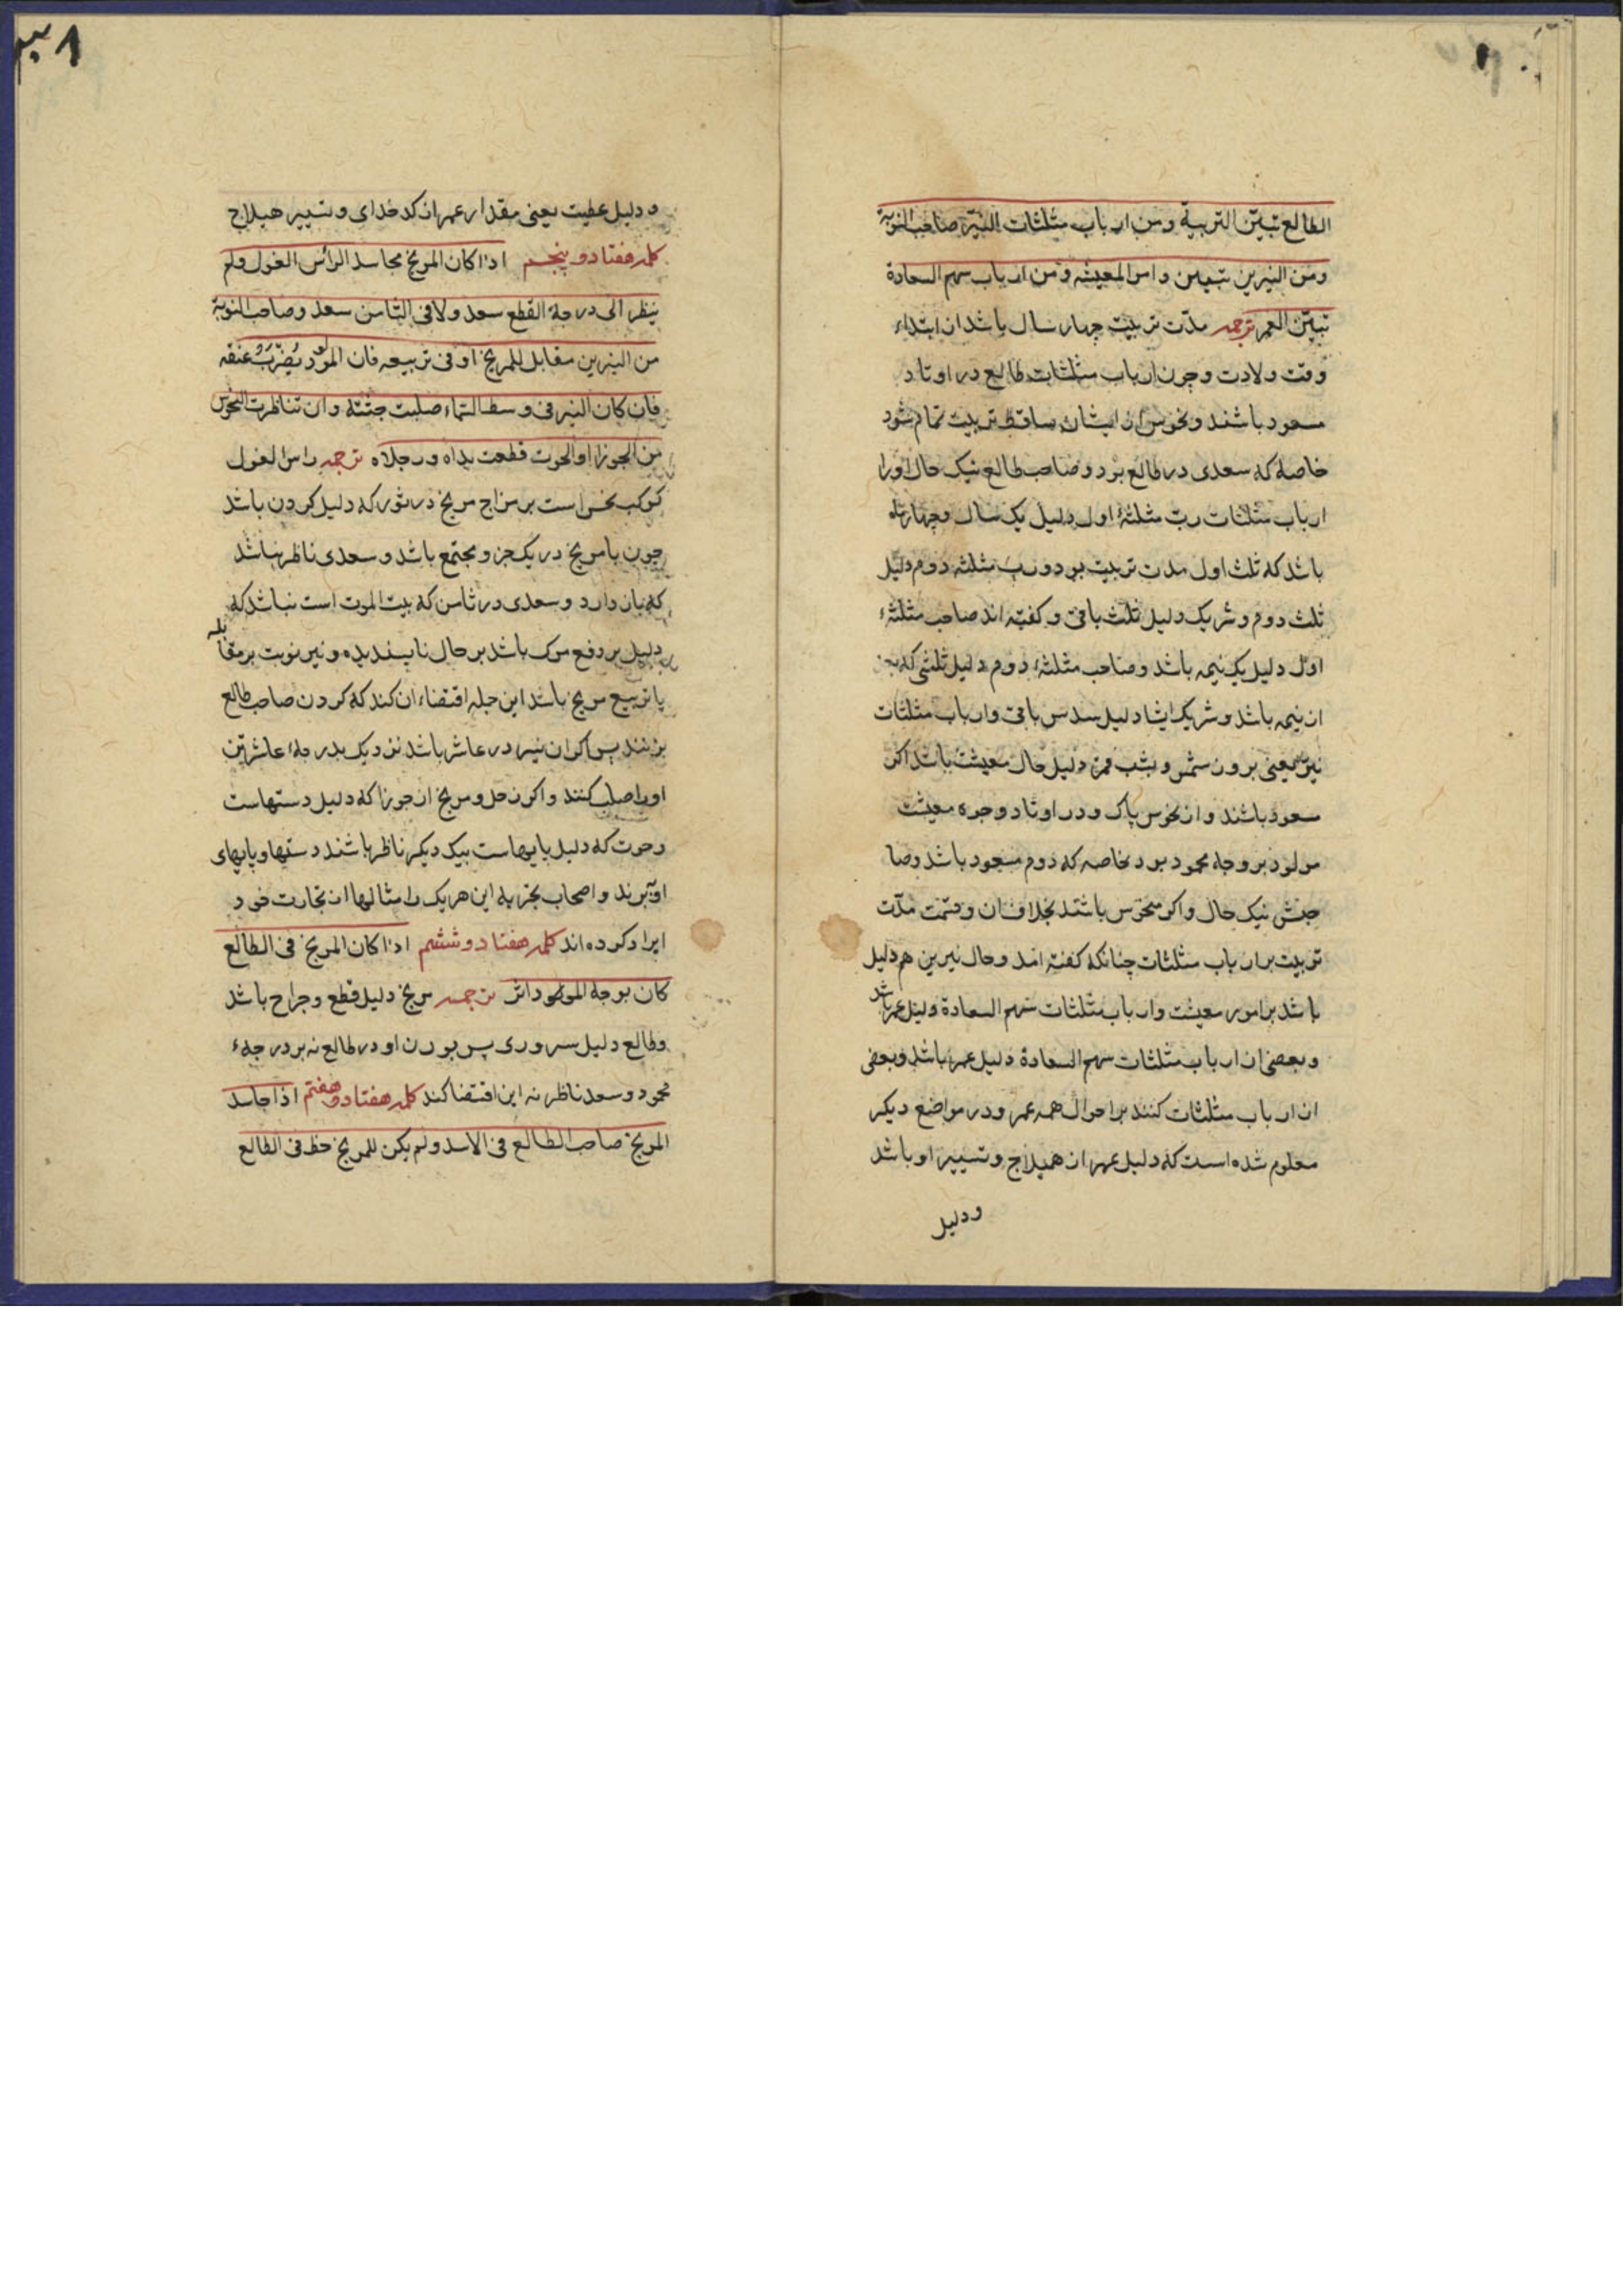 الطالع تبیّن التربیة ومن ارباب مثلثات النیّر صاحب النوبة
ومن النیرین تبیین واس المعیشه ومن ارباب سهم السعادة
تبیّن العمر ترجمه مدّت تربیت چهار سال باشد از ابتداء
وقت ولادت وچون ارباب مثلثات طالع در اوتاد
مسعود باشند ونحوس از ایشان ساقط تربیت تمام شود
خاصه که سعدی در طالع بود وصاحب طالع نیک حال اورا
ارباب مثلثات ربّ مثلثهٔ اول دلیل یک سال وچهار ماه
باشد که ثلث اول مدت تربیت بود ورب مثلثه دوم دلیل
ثلث دوم وشریک دلیل ثلث باقی وکفته اند صاحب مثلثهٔ
اول دلیل یک نیمه باشد وصاحب مثلثهٔ دوم دلیل ثلثی که بجز
ان نیمه باشد وشریک ایشا دلیل سدس باقی وارباب مثلثات
نیّر یعنی بروز شمس وبشب قمر دلیل حال معیشت باشد اکر
مسعود باشند واز نحوس پاک ودر اوتاد وجوه معیشت
مولود بر وجه محمود بود خاصه که دوم مسعود باشد وصا
حبش نیک حال واکر منحوس باشند بخلاف ان وقسمت مدّت
تربیت بر ارباب مثلثات چنانکه کفته امد وحال نیرین هم دلیل
باشد بر امور معیشت وارباب مثلثات سهم السعادة دلیل عمر باشد
وبعضی از ارباب مثلثات سهم السعادة دلیل عمر باشد وبعضی
از ارباب مثلثات کنند بر احوال همه عمر ودر مواضع دیکر
معلوم شده است که دلیل عمر از هیلاج وتسییر او باشد
ودلیل
ودلیل عطیت یعنی مقدار عمر از کدخدای وتسییر هیلاج
کلمه هفتاد وپنجم اذا کان المریخ مجاسد الراس الغول ولم
ینظر الی درجة القطع سعد ولا فی الثامن سعد وصاحب النوبة
من النیرین مقابل للمریخ او فی تربیعه فان المولود یُضْرَبُ عنقه
فان کان النیر فی وسط السماء صلبت جثته وان تناظرت النحوس
من الجوزا او الحوت قطعت یداه ورجلاه ترجمه راس الغول
کوکب نحس است بر مزاج مریخ در ثور که دلیل کردن باشد
چون با مریخ در یک جزو مجتمع باشد وسعدی ناظر نباشد
که باز دارد وسعدی در ثامن که بیت الموت است نباشد که
دلیل بر دفع مرک باشد بر حال ناپسندیده ونیر نوبت بر مقابله
یا تربیع مریخ باشد این جمله اقتضاء ان کند که کردن صاحب طالع
بزنند پس اکر ان نیر در عاشر باشد نزدیک بدرجهٔ عاشر تن
اورا صلب کنند واکر زحل ومریخ از جوزا که دلیل دستهاست
وحوت که دلیل پایهاست بیک دیکر ناظر باشند دستها وپایهای
او ببرند واصحاب تجربه این هر یک را مثالها از تجارت خود
ایراد کرده اند کلمه هفتاد وششم اذا کان المریخ فی الطالع
کان بوجه المولود اثر ترجمه مریخ دلیل قطع وجراح باشد
وطالع دلیل سر وروی پس بودن او در طالع نه بر درجهٔ
محمود وسعد ناظر نه این اقتضا کند کلمه هفتاد وهفتم اذا جاسد
المریخ صاحب الطالع فی الاسد ولم یکن للمریخ حظ فی الطالع